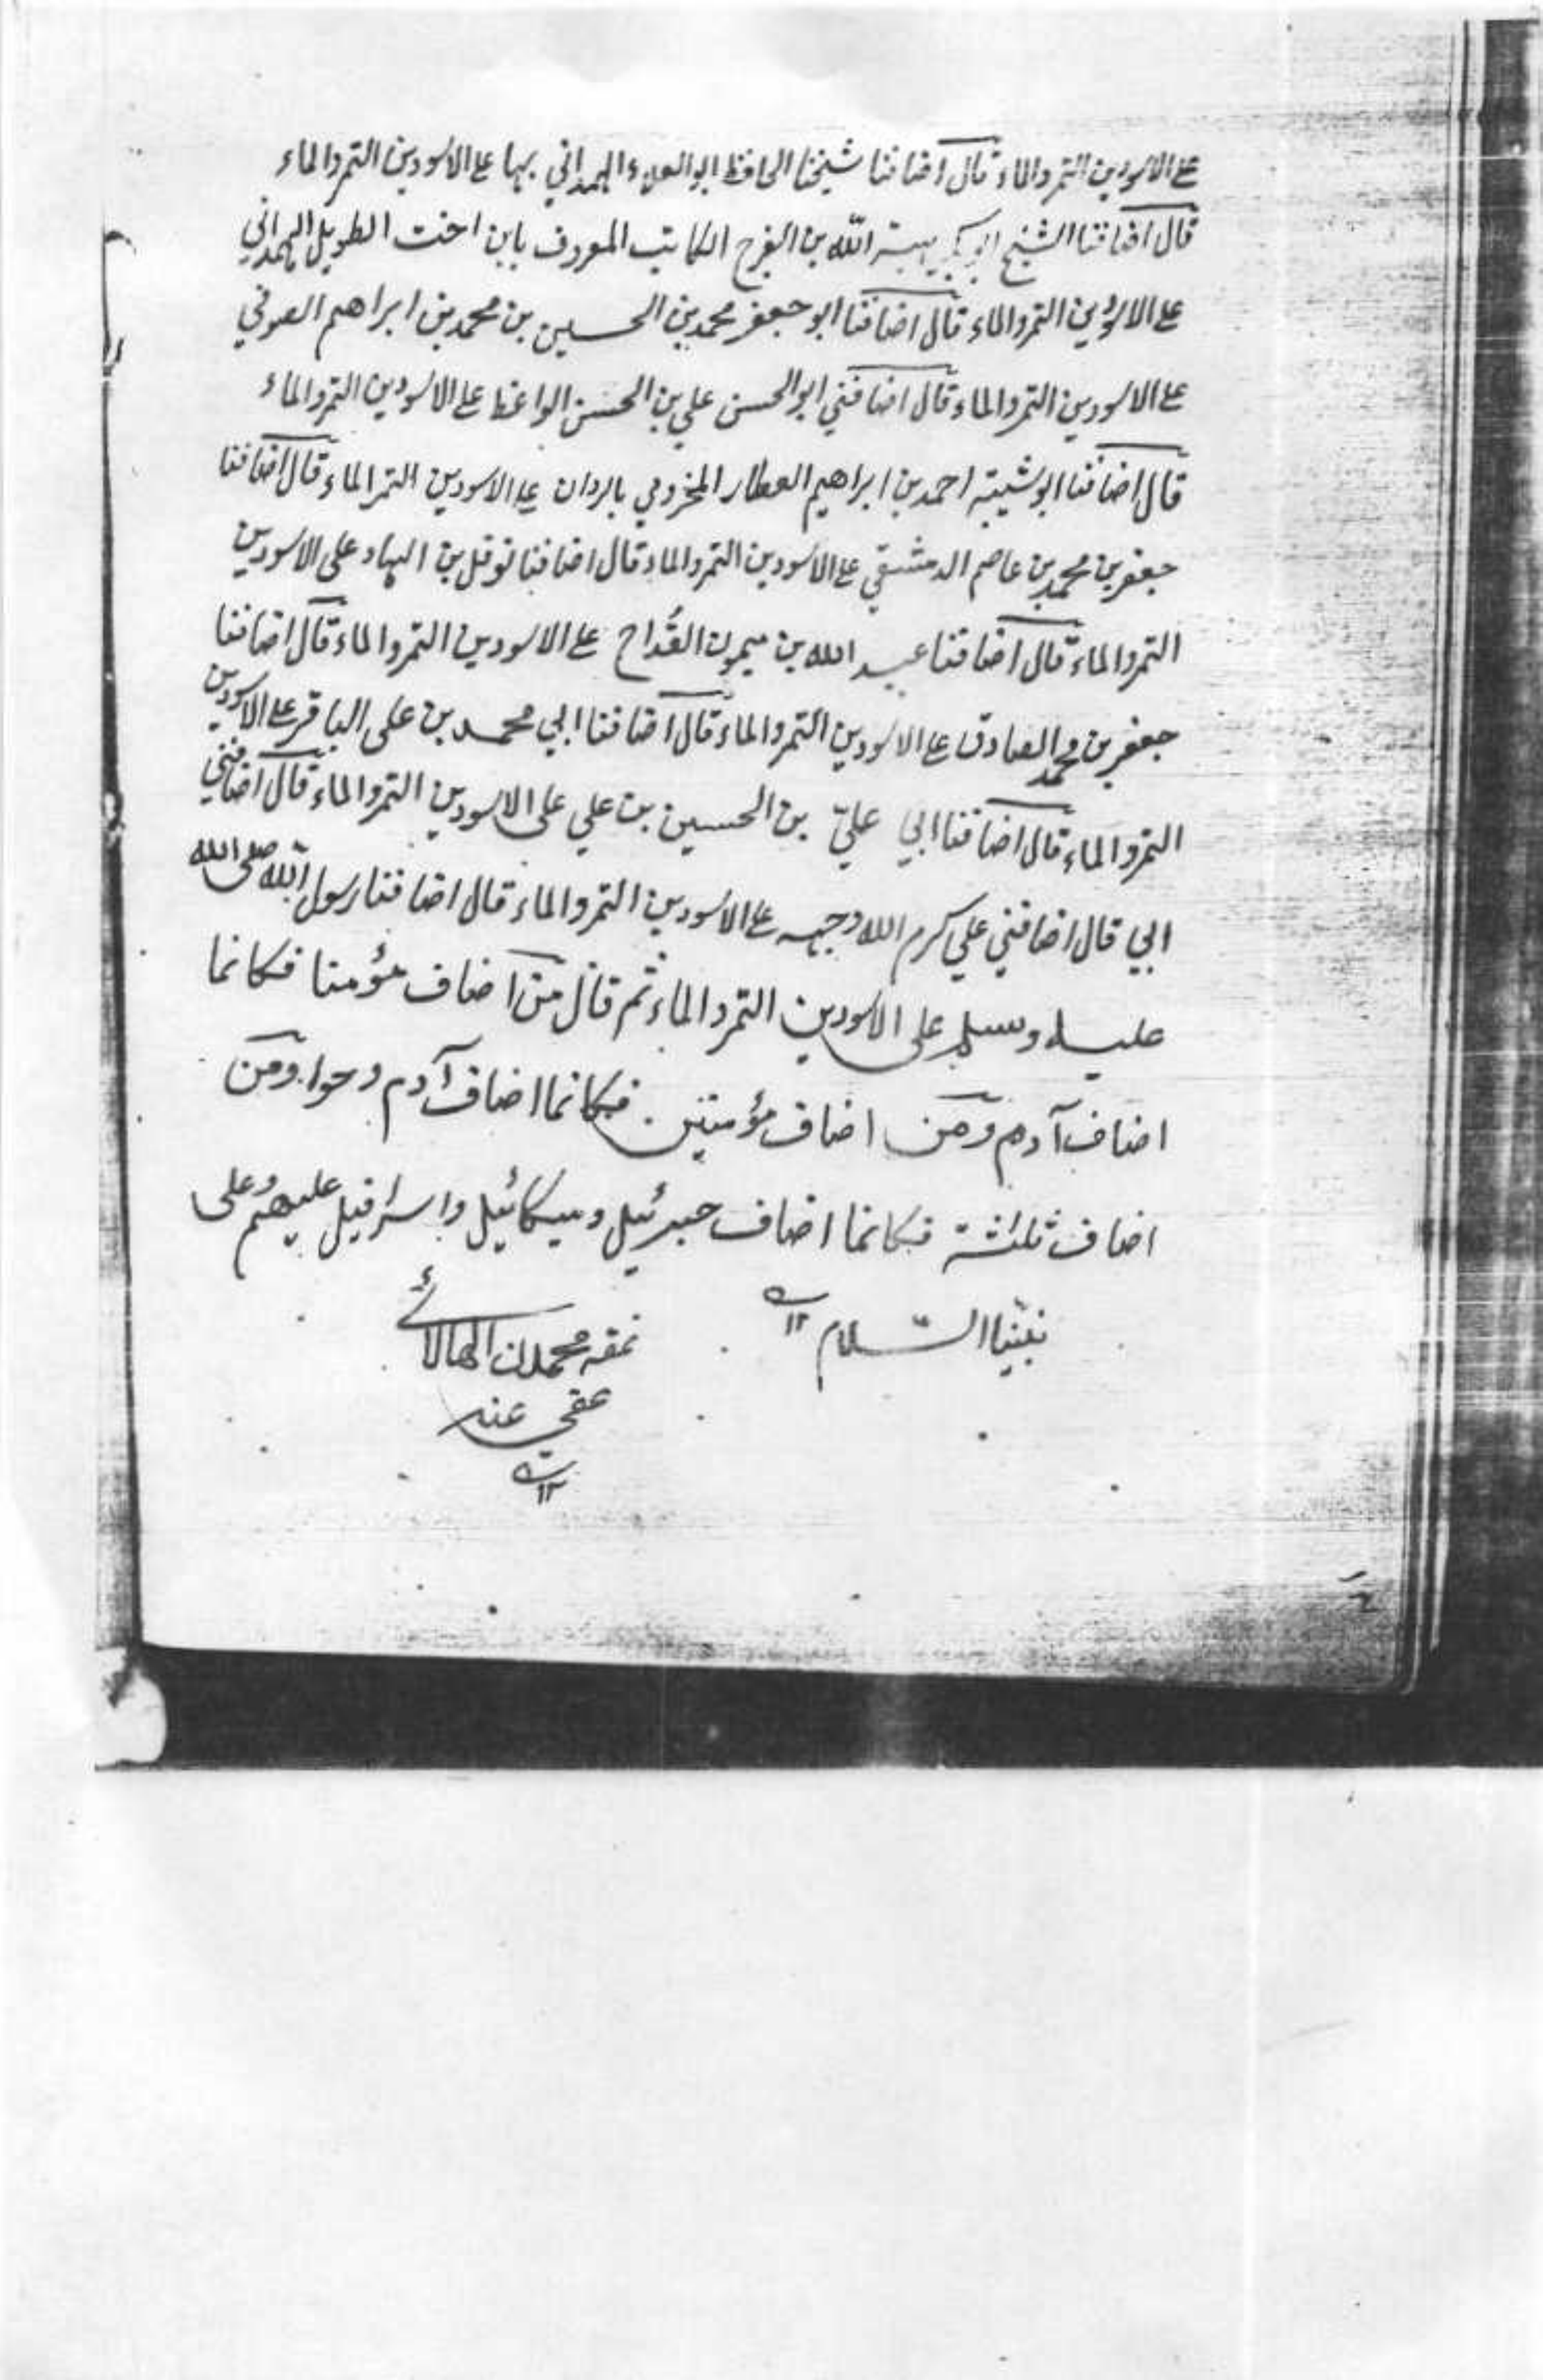 على الاسودين التمر والماء قال اضافنا شيخنا الحافظ ابو العلاء الهمداني بها على الاسودين التمر والماء
قال اضافنا الشيخ ابو بكر هبة الله بن الفرج الكاتب المعروف بابن اخت الطويل الهمداني
على الاسودين التمر والماء قال اضافنا ابو جعفر محمد بن الحسين بن محمد بن ابراهيم الصوفي
على الاسودين التمر والماء قال اضافني ابو الحسن علي بن الحسن الواعظ على الاسودين التمر والماء
قال اضافنا ابو شيبة احمد بن ابراهيم العطار المخزومي بالردان على الاسودين التمر الماء قال اضافنا
جعفر بن محمد بن عاصم الدمشقي على الاسودين التمر والماء قال اضافنا نوفل بن الهاد على الاسودين
التمر والماء قال اضافنا عبيد الله بن ميمون القداح على الاسودين التمر والماء قال اضافنا
جعفر بن محمد الصادق على الاسودين التمر والماء قال اضافنا ابي محمد بن على الباقر على الاسودين
التمر والماء قال اضافنا ابي عليّ بن الحسين بن علي على الاسودين التمر والماء قال اضافني
ابي قال اضافني علي كرم الله وجهه على الاسودين التمر والماء قال اضافنا رسول الله صلى الله
عليه وسلم على الاسودين التمر والماء ثم قال من اضاف مؤمنا فكانما
اضاف آدم ومن اضاف مؤمنين فكانما اضاف آدم وحواء ومن
اضاف ثلثة فكانما اضاف جبرئيل وميكائيل واسرافيل عليهم وعلى
نبينا السّلام ١٢ نمقه محمد
عفي عنه
١٢